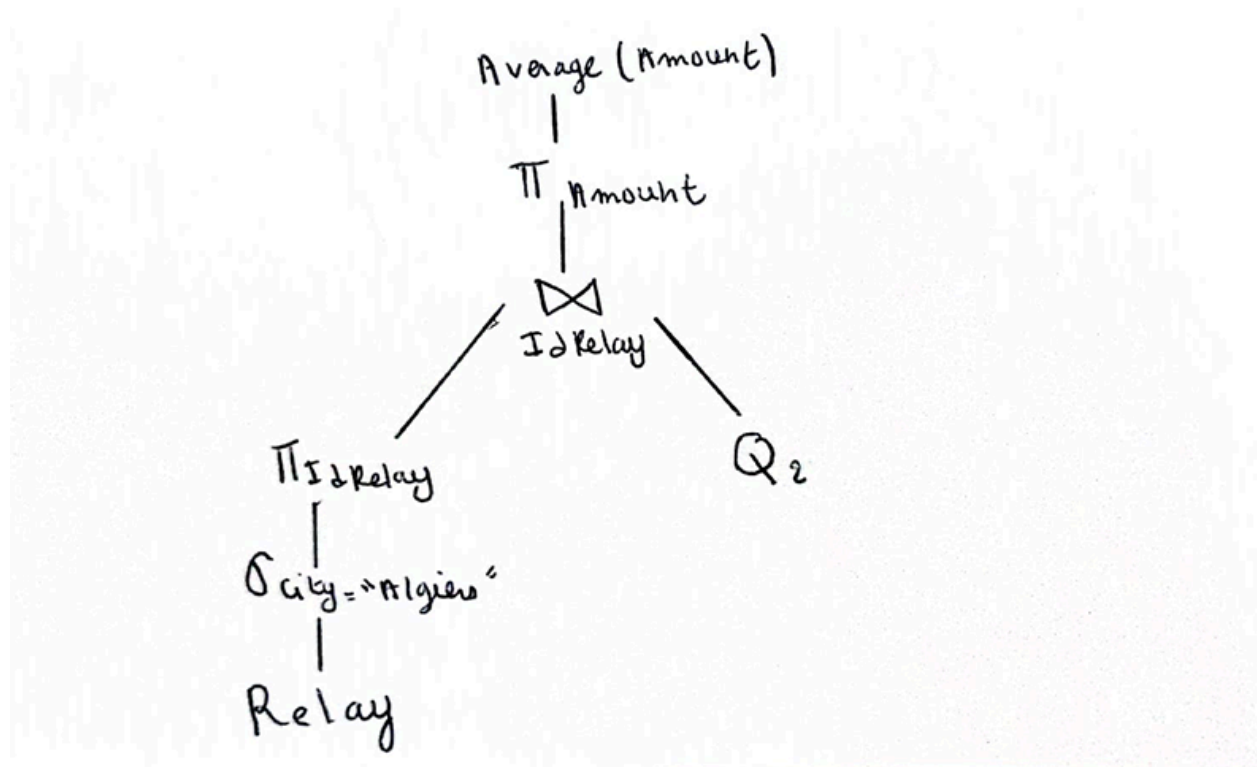 Average (Amount)
π Amount
⋈
IdRelay
π IdRelay
Q2
σ city = "Algiers"
Relay